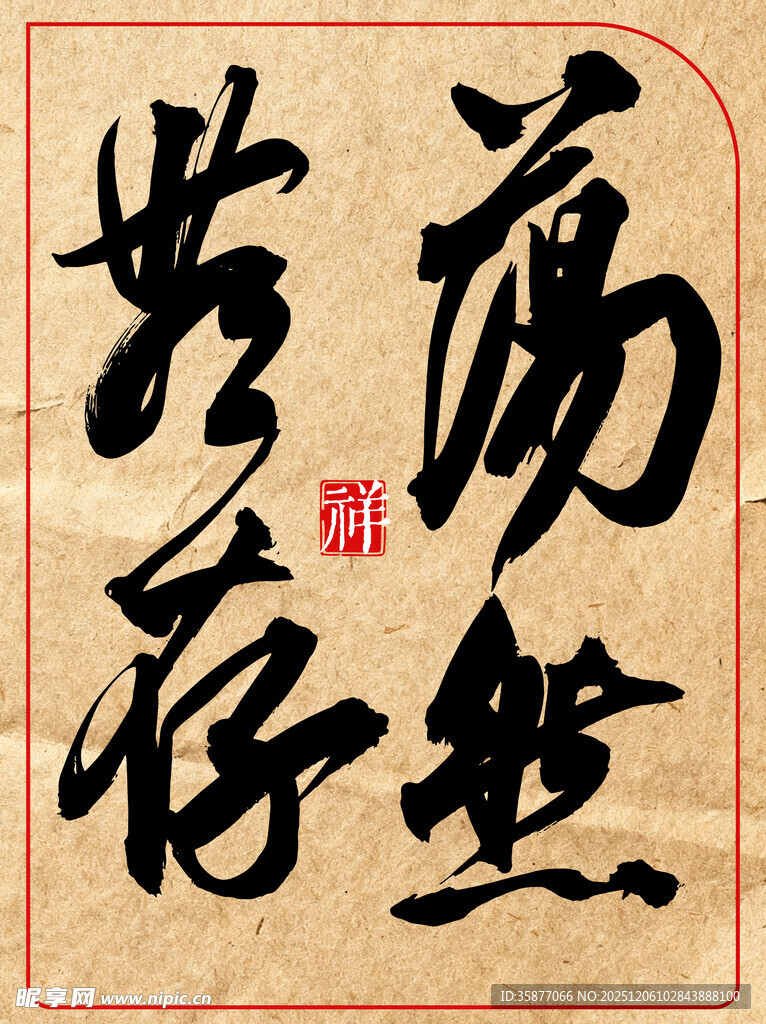 荡然
无存
祥
昵享网 www.nipic.cn
ID:35877066 NO:20251206102843888100